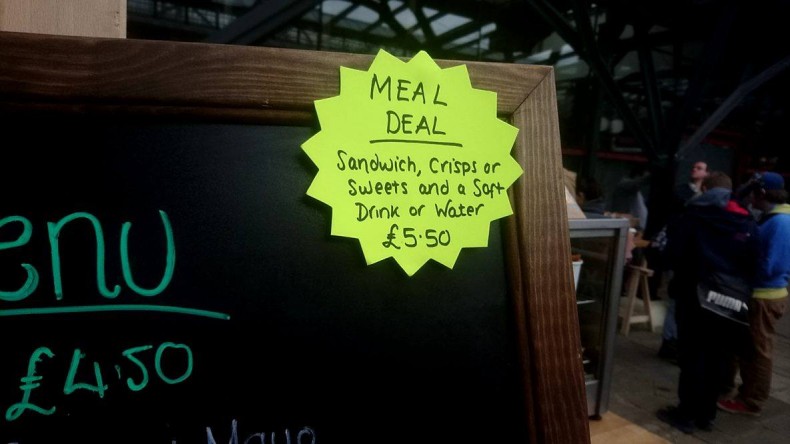 MEAL
DEAL
Sandwich, Crisps or
Sweets and a Soft
Drink or Water
£5.50
enu
£4.50
Mayo
PUMA